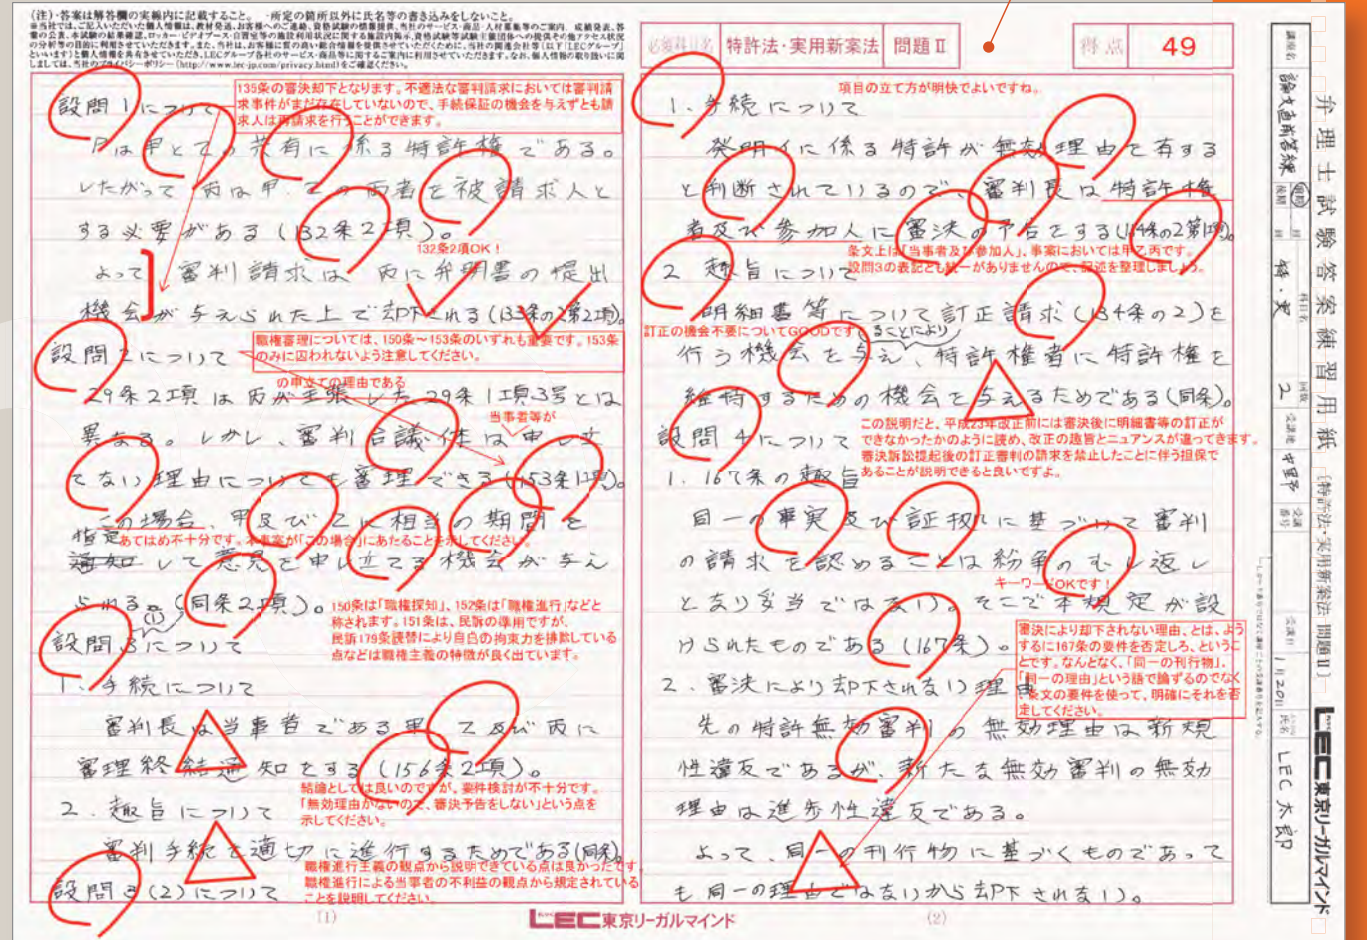 (注)・答案は解答欄の実線内に記載すること。 ・所定の箇所以外に氏名等の書き込みをしないこと。
必須科目名 特許法・実用新案法 問題Ⅱ
得点 49
設問1について
135条の審決却下となります。不適法な審判請求においては審判請
求事件がまだ存在していないので、手続保証の機会を与えずとも請
求人は再請求を行うことができます。
Pは甲と乙の共有に係る特許権である。
したがって丙は甲、乙の両者を被請求人と
する必要がある(132条2項)。
132条2項OK!
よって、審判請求は、丙に弁明書の提出
機会が与えられた上で却下される(133条の2第2項)。
職権審理については、150条~153条のいずれも重要です。153条
のみに囚われないよう注意してください。
設問2について
の申立ての理由である
29条2項は丙が主張した29条1項3号とは
当事者等が
異なる。しかし、審判合議体は申し立
てない理由についても審理できる(153条1項)。
この場合、甲及び乙に相当の期間を
あてはめ不十分です。本事案が「この場合」にあたることを示してください。
指定
通知して意見を申し立てる機会が与え
られる(同条2項)。
150条は「職権探知」、152条は「職権進行」などと
称されます。151条は、民訴の準用ですが、
民訴179条読替により自白の拘束力を排除している
点などは職権主義の特徴が良く出ています。
(1)
設問3について
1. 手続について
審判長は当事者である甲、乙及び丙に
審理終結通知をする(156条2項)。
結論としては良いのですが、要件検討が不十分です。
「無効理由がないので、審決予告をしない」という点を
示してください。
2. 趣旨について
審判手続を適切に進行するためである(同条)。
職権進行主義の観点から説明できている点は良かったです。
職権進行による当事者の不利益の観点から規定されている
ことを説明してください。
設問3(2)について
(1)
項目の立て方が明快でよいですね。
1. 手続について
発明イに係る特許が無効理由を有する
と判断されているので、審判長は特許権
者及び参加人に審決の予告をする(164条の2第1項)。
条文上は「当事者及び参加人」、事案においては甲乙丙です。
設問3の表記とも統一がありませんので、記述を整理しましょう。
2 趣旨について
明細書等について訂正請求(134条の2)を
訂正の機会不要についてGOODです
ることにより
行う機会を与え、特許権者に特許権を
維持するための機会を与えるためである(同条)。
この説明だと、平成23年改正前には審決後に明細書等の訂正が
できなかったかのように読め、改正の趣旨とニュアンスが違ってきます。
審決訴訟提起後の訂正審判の請求を禁止したことに伴う担保で
あることが説明できると良いですよ。
設問4について
1. 167条の趣旨
同一の事実及び証拠に基づいて審判
の請求を認めることは紛争のむし返し
キーワードOKです!
となり妥当ではない。そこで本規定が設
けられたものである(167条)。
審決により却下されない理由、とは、よう
するに167条の要件を否定しろ、というこ
とです。なんとなく、「同一の刊行物」、
「同一の理由」という語で論ずるのでなく
条文の要件を使って、明確にそれを否
定してください。
2. 審決により却下されない理由
先の特許無効審判の無効理由は新規
性違反であるが、新たな無効審判の無効
理由は進歩性違反である。
よって、同一の刊行物に基づくものであって
も同一の理由ではないから却下されない。
(2)
LEC東京リーガルマインド
弁理士試験答案練習用紙 〔特許法・実用新案法 問題Ⅱ〕
LEC東京リーガルマインド
講座名 論文直前答練
前期 後期
科目名 特・実
回数 2
受講地 中野
受講番号
受講日 1月20日
氏名 LEC太郎